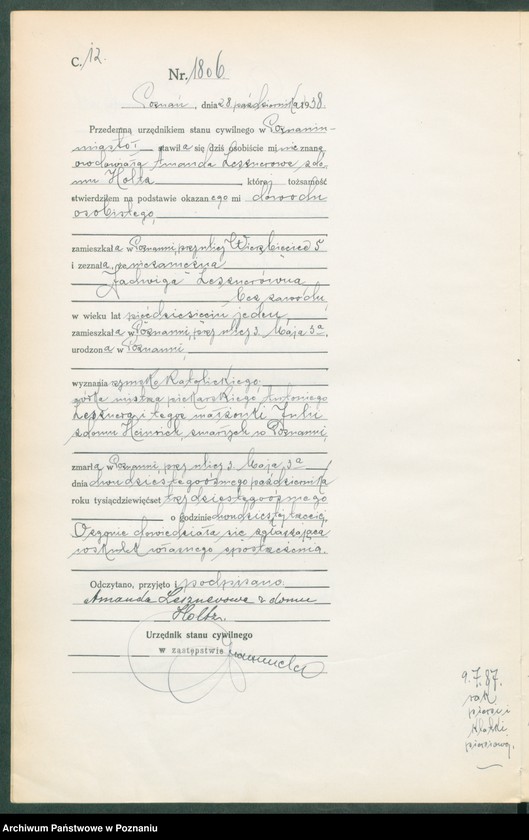 C. 12.
Nr. 1806
Poznań, dnia 28 października 1938.
Przedemną urzędnikiem stanu cywilnego w Poznaniu-
miasto: stawiła się dziś osobiście mi nie znana
owdowiała Amanda Lesznerowa z do-
mu Holtz której tożsamość
stwierdziłem na podstawie okazanego mi dowodu
osobistego,
zamieszkała w Poznaniu, przy ulicy Wierzbięcice 5
i zeznała, że niezamężna
Jadwiga Lesznerówna
bez zawodu,
w wieku lat pięćdziesięciu jeden,
zamieszkała w Poznaniu, przy ulicy 3. Maja 3a.
urodzona w Poznaniu,
wyznania rzymsko katolickiego
córka mistrza piekarskiego Antoniego
Lesznera i tegoż małżonki Julii
z domu Heinrich zmarłych w Poznaniu
zmarła w Poznaniu, przy ulicy 3. Maja 3a
dnia dwudziestego ósmego października
roku tysiącdziewięćset trzydziestego ósmego
o godzinie dwudziestej trzeciej.
O zgonie dowiedziała się zgłaszająca
wskutek własnego spostrzeżenia.
Odczytano, przyjęto i podpisano
Amanda Lesznerowa z domu
Holtz.
Urzędnik stanu cywilnego
w zastępstwie
9.7.87.
rak
piersi i
klatki
piersiowej.
Archiwum Państwowe w Poznaniu